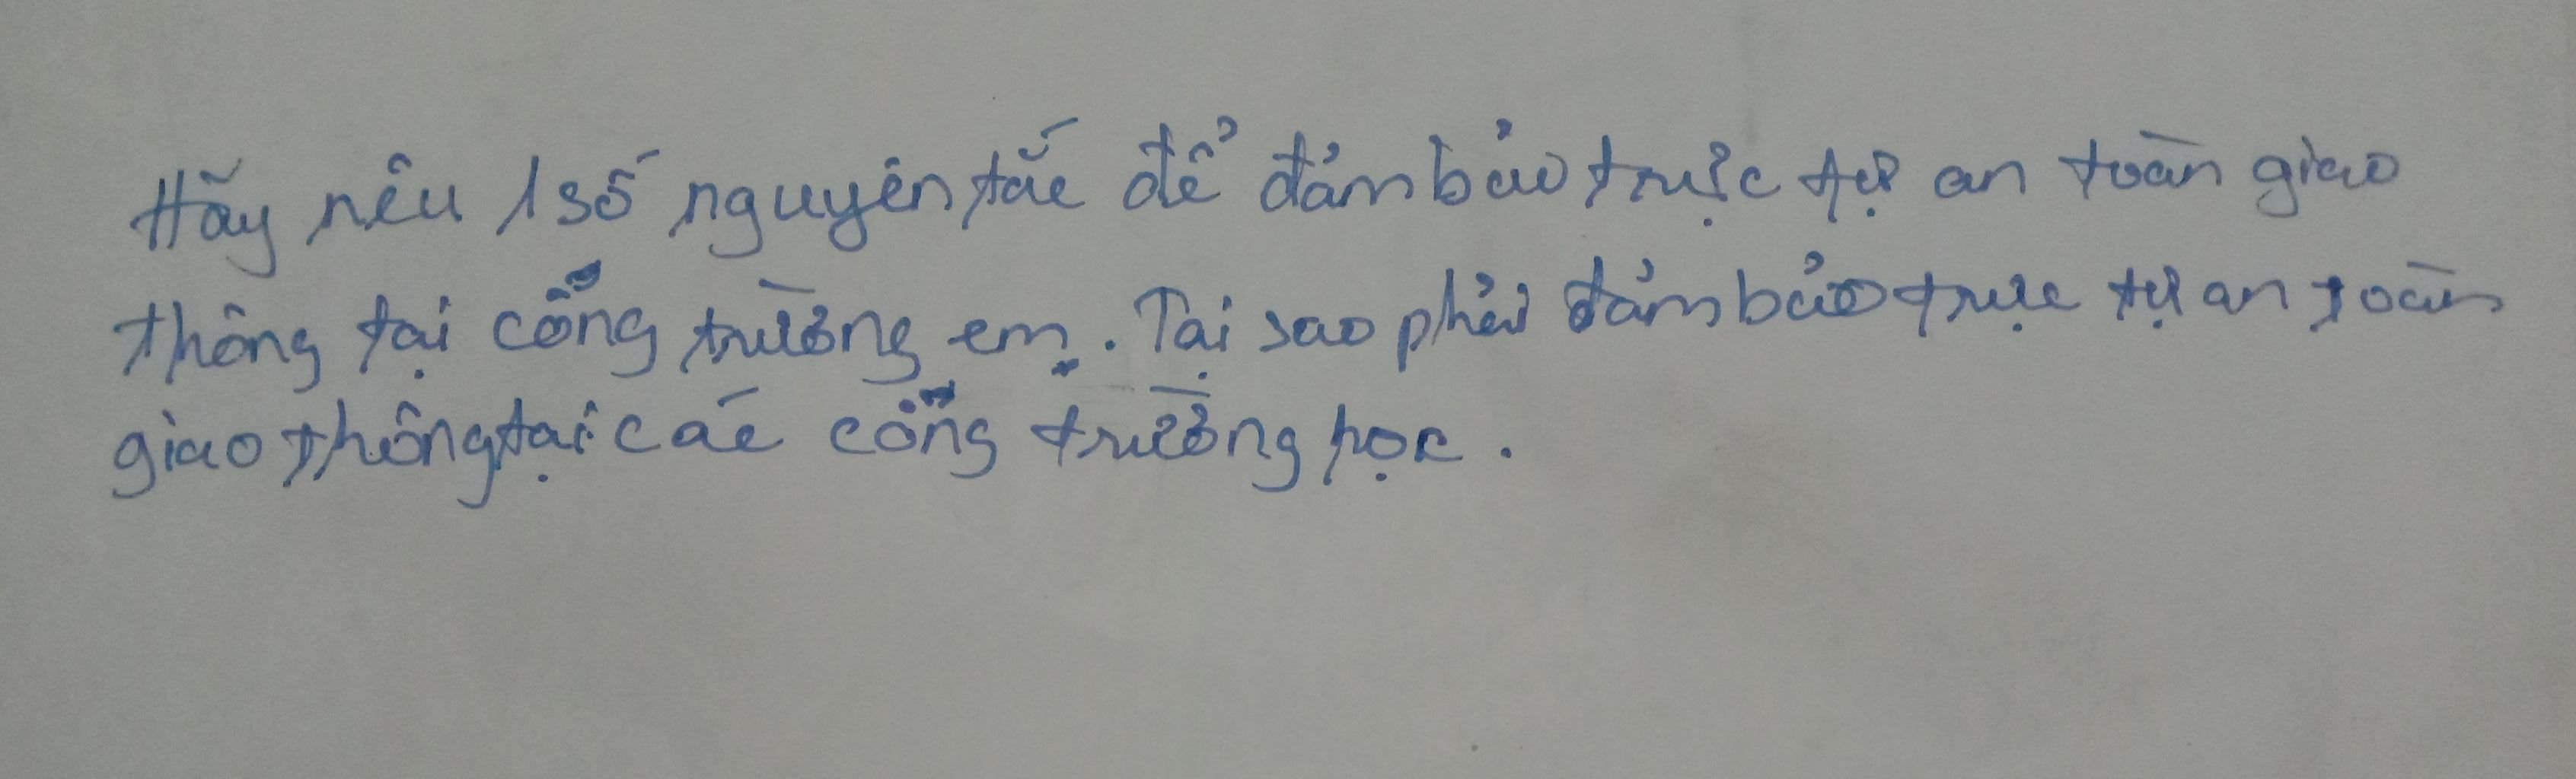 Hãy nêu 1 số nguyên tắc để đảm bảo trực tự an toàn giao
thông tại cổng trường em. Tại sao phải đảm bảo trực tự an toàn
giao thông tại các cổng trường học.